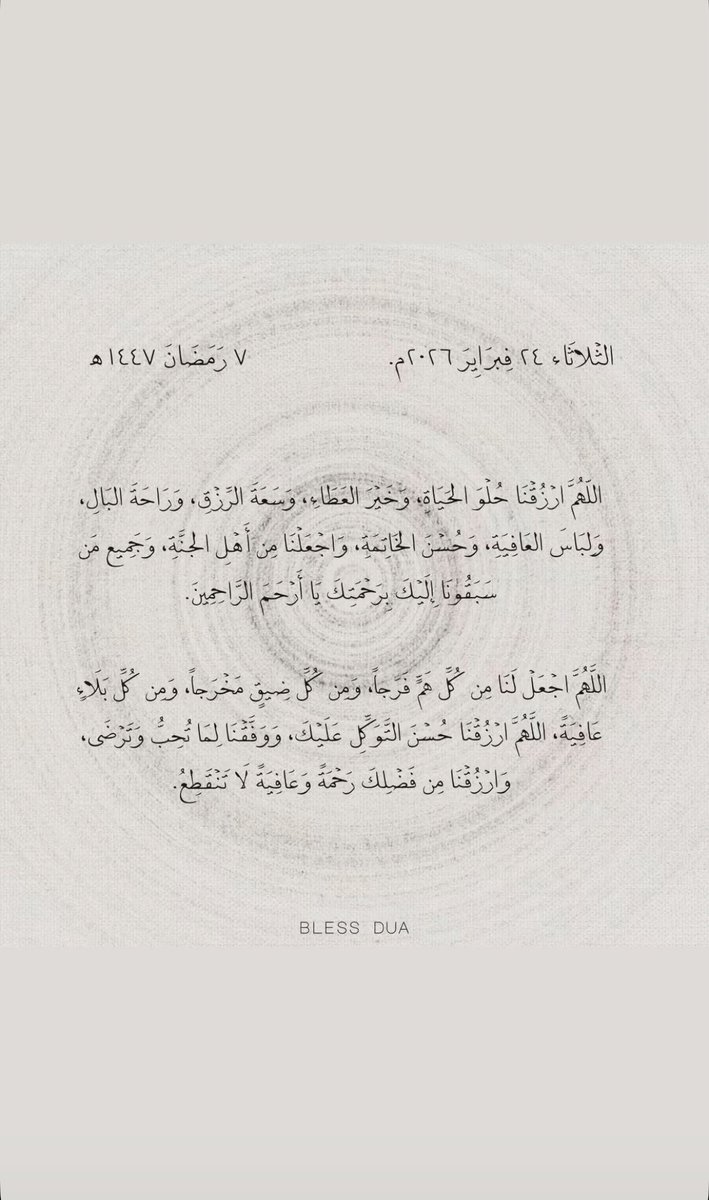 الثْلاثَاء ٢٤ فِبرَايِرَ ٢٠٢٦م. ٧ رَمَضَانَ ١٤٤٧ه
اللَهُمَّ ارْزُقْنَا حُلْوَ الحَيَاةِ، وَخَيْرَ العَطَاءِ، وَسَعَةَ الرِّزْقِ، وَرَاحَةَ البَالِ،
وَلِبَاسَ العَافِيَةِ، وَحُسْنَ الخَاتِمَةِ، وَاجْعَلْنَا مِن أَهْلِ الجنَّةِ، وَجَمِيع مَن
سَبَقُونَا إِلَيْكَ بِرَحْمَتِكَ يَا أَرْحَمَ الرَّاحِمِينَ.
اللَّهُمَّ اجْعَلْ لَنَا مِن كُلِّ هَمٍّ فَرَجاً، وَمِن كُلِّ ضِيقٍ مَخْرَجاً، وَمِن كُلِّ بَلَاءٍ
عَافِيَةً، اللَّهُمَّ ارْزُقْنَا حُسْنَ التَّوَكِّلِ عَلَيْكَ، وَوَفِّقْنَا لِمَا تُحِبُّ وَتَرْضَى،
وَارْزُقْنَا مِن فَضْلِكَ رَحْمَةً وَعَافِيَةً لَا تَنْقَطِعُ.
BLESS DUA